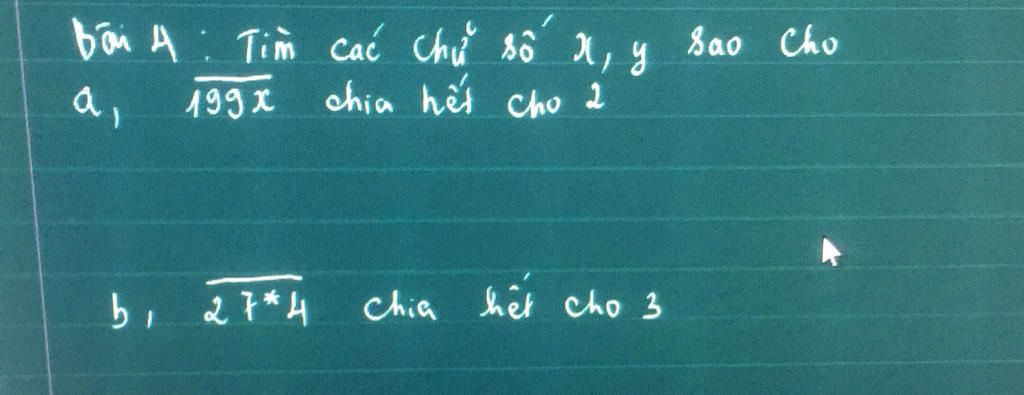 Bài 4 : Tìm các chữ số x, y sao cho
a, 199x chia hết cho 2
b, 27*4 chia hết cho 3